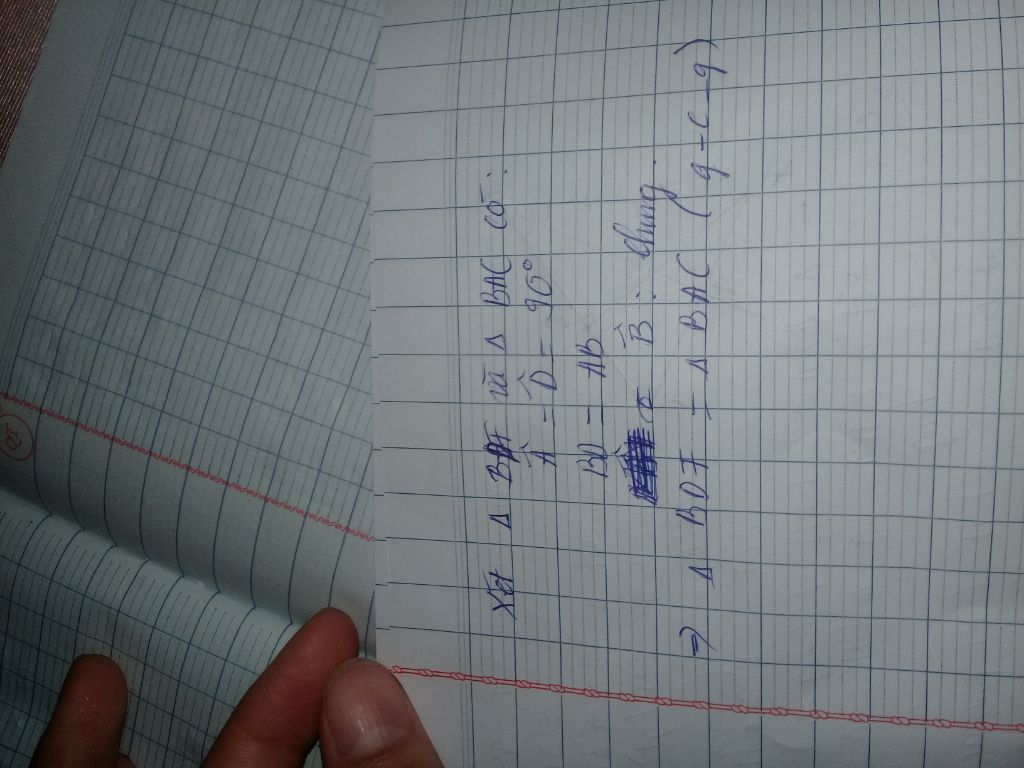 Xét Δ BDF và Δ BAC có:
Â = D̂ = 90°
BD = AB
B̂ : chung
=> Δ BDF = Δ BAC (g-c-g)